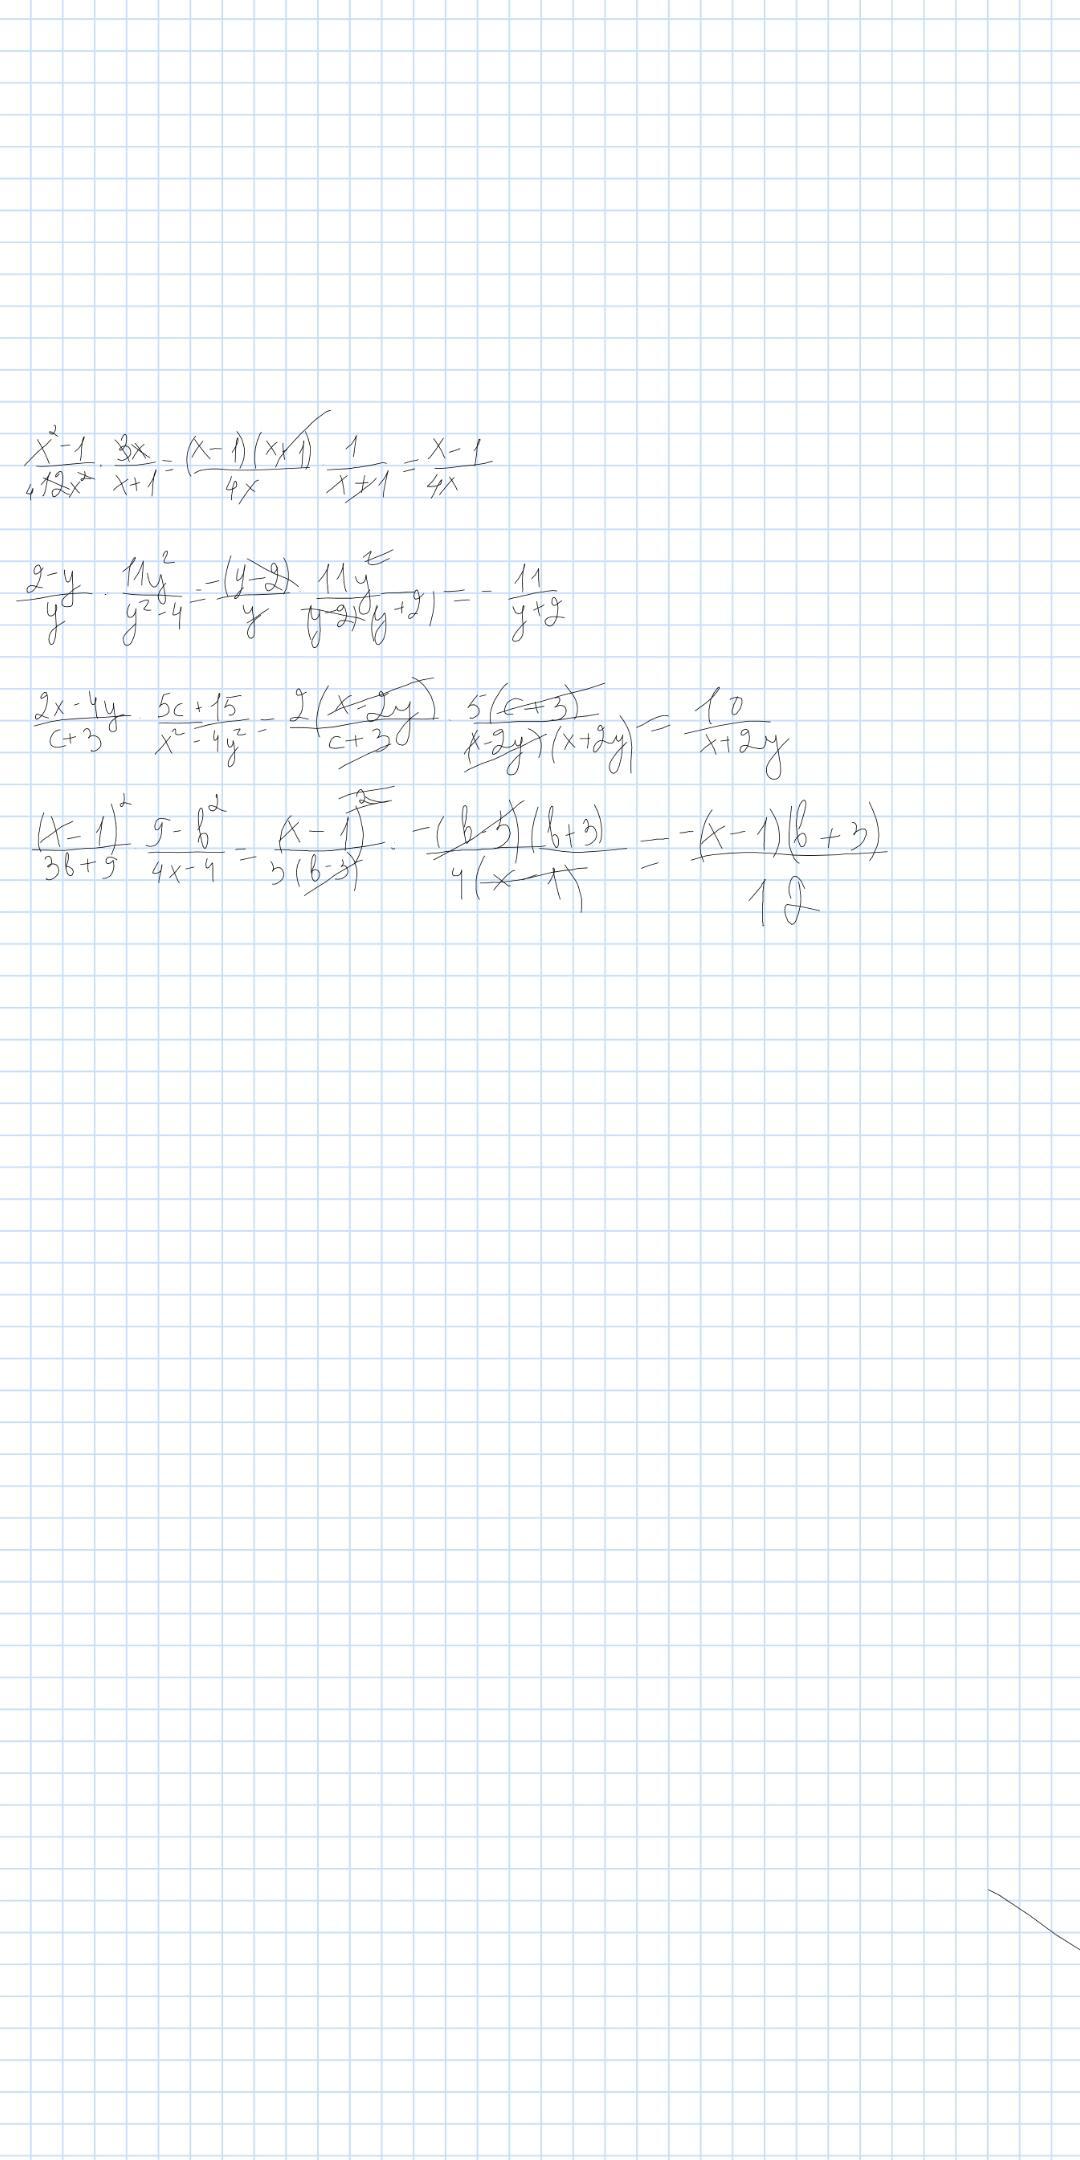 x²-1/12x² · 3x/x+1 = (x-1)(x+1)/4x 1/x+1 = x-1/4x
2-y/y · 11y²/y²-4 = -(y-2)/y 11y²/(y-2)(y+2) = - 11/y+2
2x-4y/c+3 5c+15/x²-4y² = 2(x-2y)/c+3 · 5(c+3)/(x-2y)(x+2y) = 10/x+2y
(x-1)²/3b+9 9-b²/4x-4 = (x-1)²/3(b-3) · -(b-3)(b+3)/4(x-1) = -(x-1)(b+3)/12